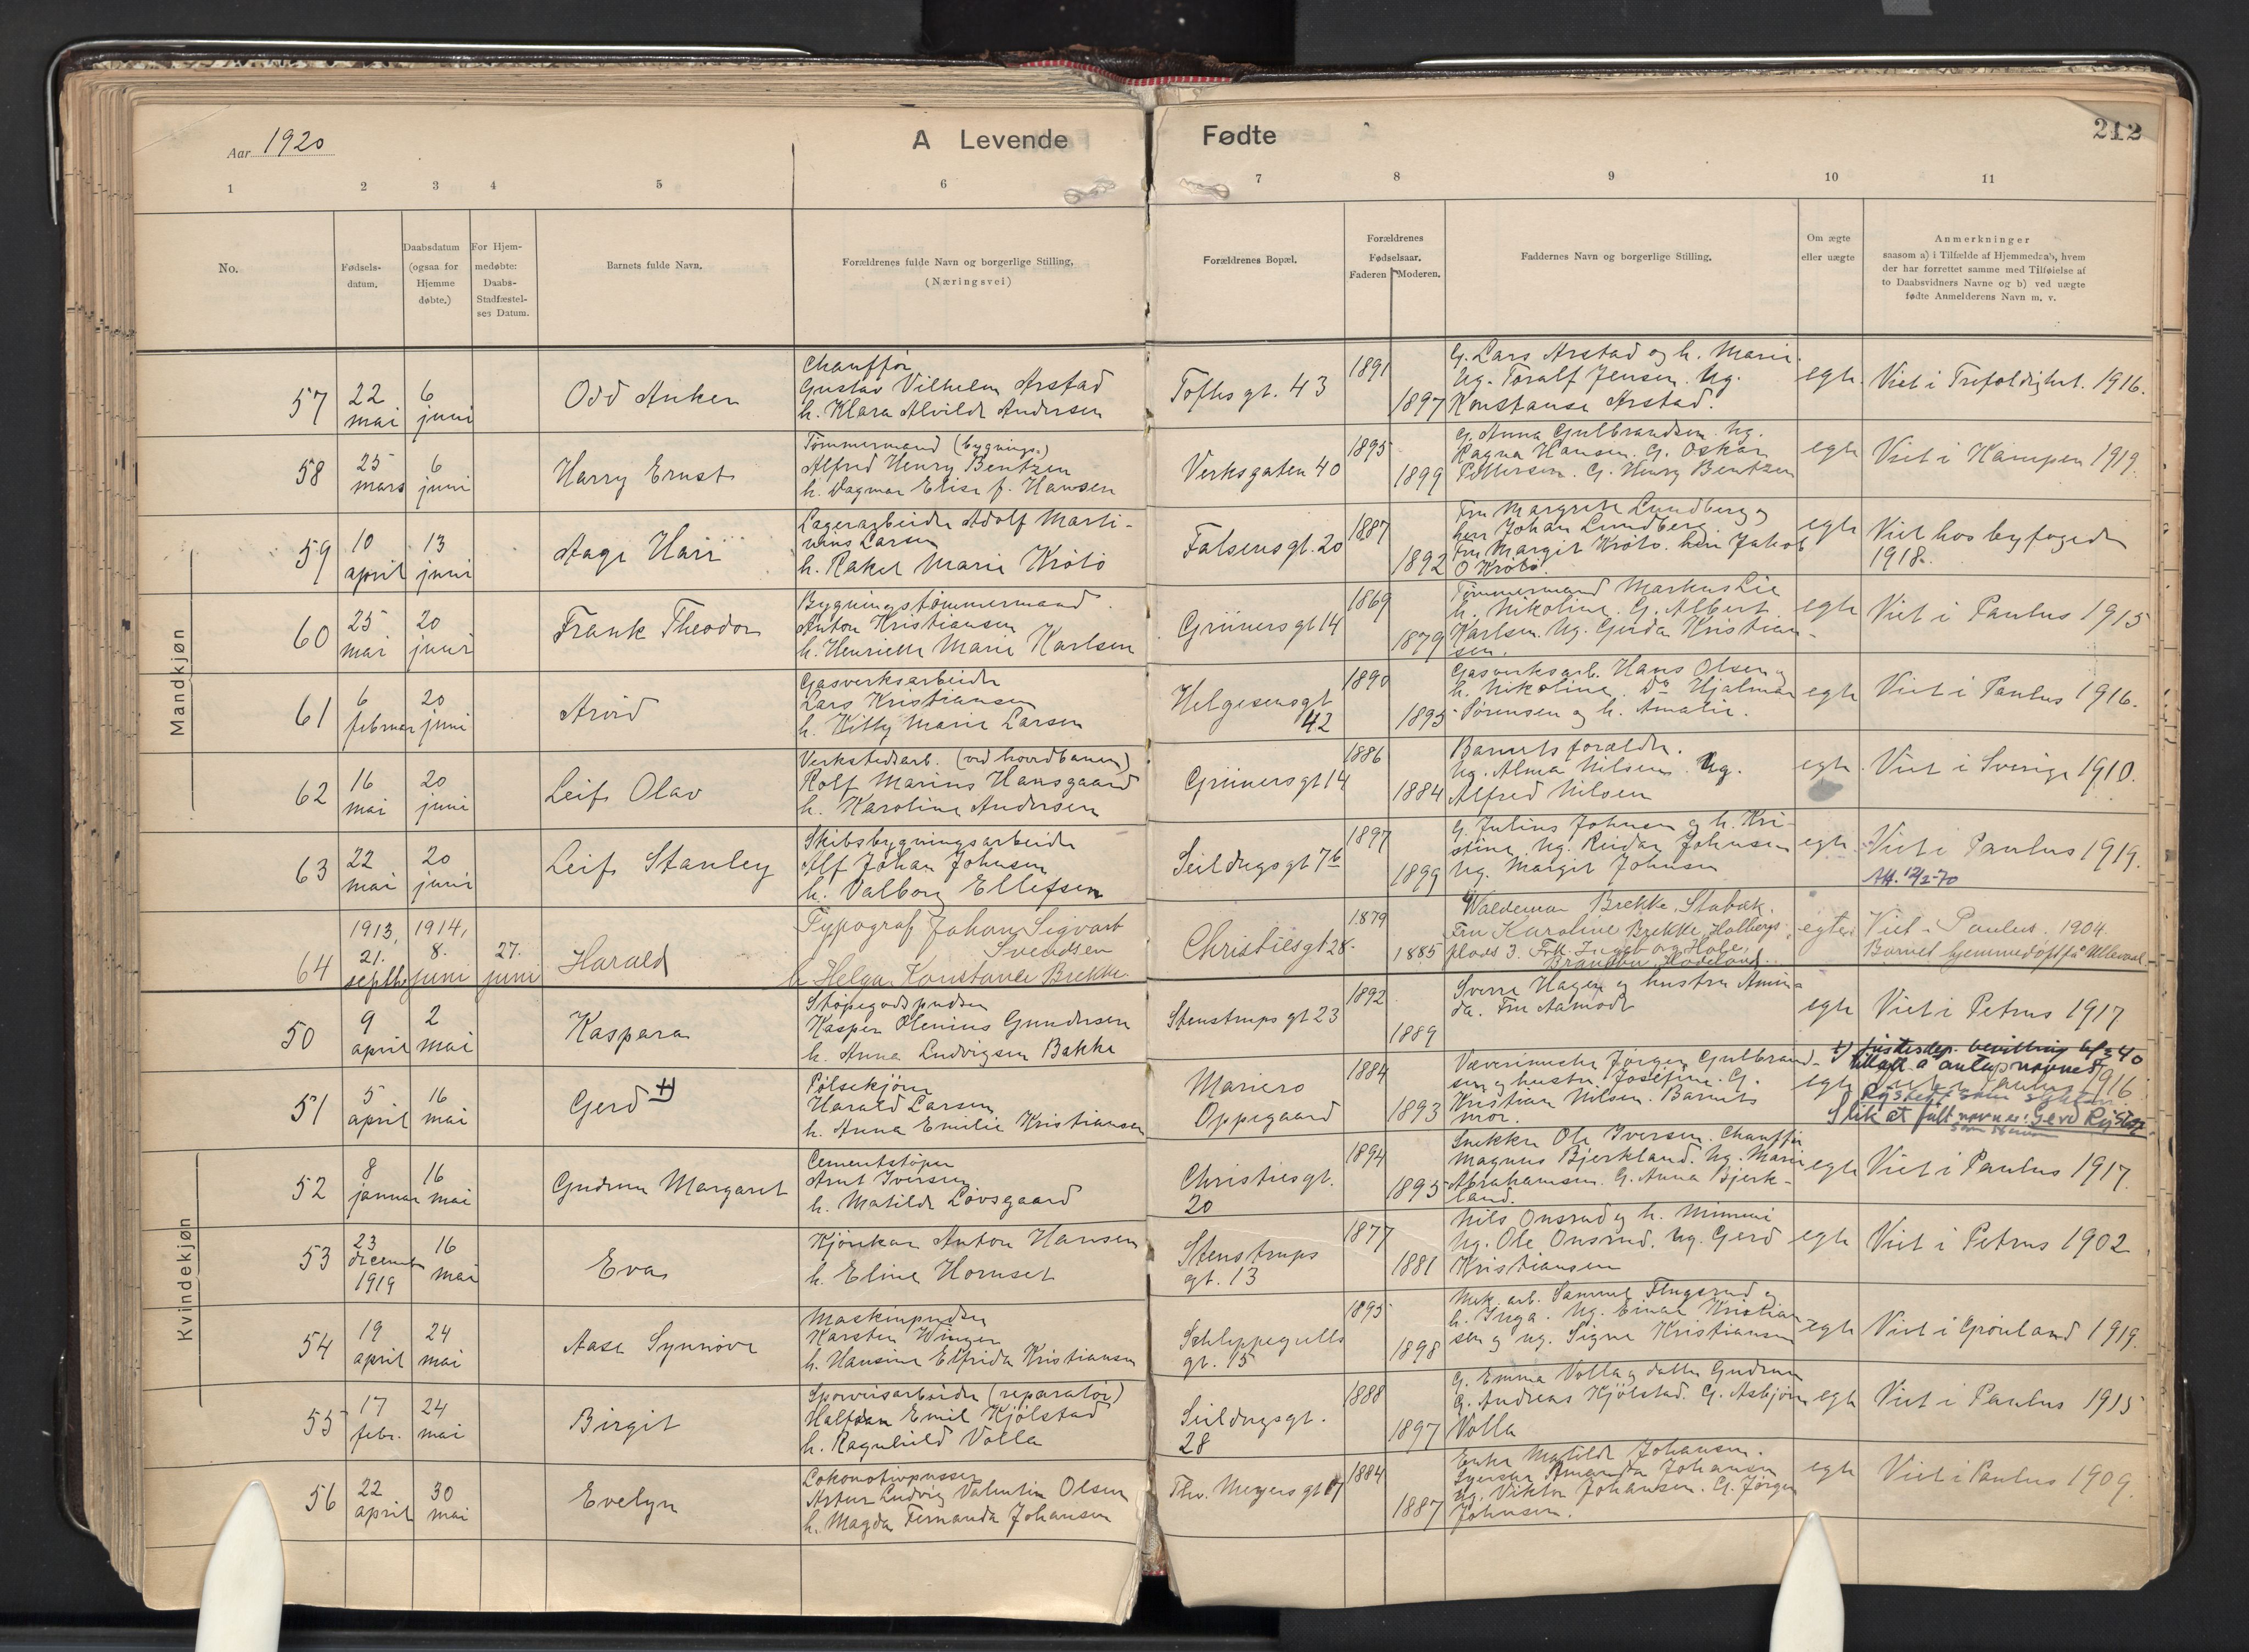 Aar 1920
A Levende Fødte
212
1 2 3 4 5 6 7 8 9 10 11
No.
Fødsels-
datum.
Daabsdatum
(ogsaa for
Hjemme
døbte.)
For Hjem-
medøbte:
Daabs-
Stadfæstel-
ses Datum.
Barnets fulde Navn.
Forældrenes fulde Navn og borgerlige Stilling.
(Næringsvei)
Forældrenes Bopæl.
Forældrenes
Fødselsaar.
Faderen Moderen.
Faddernes Navn og borgerlige Stilling.
Om ægte
eller uægte
Anmerkninger
saasom a) i Tilfælde af Hjemmedaab, hvem
der har forrettet samme med Tilføielse af
to Daabsvidners Navne og b) ved uægte
fødte Anmelderens Navn m. v.
Mandkjøn
57
22
mai
6
juni
Odd Anker
Chauffør
Gustav Vilhelm Arstad
h. Klara Alvilde Andersen
Toftesgt. 43
1891
1897
G. Lars Arstad og h. Marie.
Ug. Toralf Jensen. Ug.
Konstanse Arstad.
egte
Viet i Trefoldighet. 1916.
58
25
mars
6
juni
Harry Ernst
Tømmermand (bygnings.)
Alfred Henry Bentzen
h. Dagmar Elise f. Hansen
Verksgaten 40
1895
1899
G. Anna Gulbrandsen. Ug.
Ragna Hansen. G. Oskar
Pettersen. G. Henry Bentzen
egte
Viet i Kampen 1919.
59
10
april
13
juni
Aage Harr
Lagerarbeider Adolf Marti-
nius Larsen
h. Rakel Marie Krötö
Falsensgt. 20
1887
1892
Fru Margrete Lundberg og
herr Johan Lundberg.
Fru Margit Krötö. herr Jakob
O Krötö.
egte
Viet hos byfogden
1918.
60
25
mai
20
juni
Frank Theodor
Bygningstömmermand
Anton Kristiansen
h. Henriette Marie Karlsen
Grünersgt 14
1869
1879
Tømmermand Markus Lie
h. Nikoline. G. Albert
Karlsen. Ug. Gerda Kristian-
sen.
egte
Viet i Paulus 1915
61
6
februar
20
juni
Arvid
Gasverksarbeider
Lars Kristiansen
h. Kitty Marie Larsen
Helgesensgt
42
1890
1895
Gasverksarb. Hans Olsen og
h. Nikoline. Do Hjalmar
Sørensen og h. Amalie.
egte
Viet i Paulus 1916.
62
16
mai
20
juni
Leif Olav
Verkstedsarb. (ved hovedbanen)
Rolf Marius Hansgaard
h. Karoline Andersen
Grünersgt 14
1886
1884
Barnets forældre.
Ug. Alma Nilsen. Ug.
Alfred Nilsen
egte
Viet i Sverige 1910.
63
22
mai
20
juni
Leif Stanley
Skibsbygningsarbeider
Alf Johan Johnsen
h. Valborg Ellefsen
Seildugsgt 7b
1897
1899
G. Julius Johnsen og h. Kri-
stine. Ug. Reidar Johnsen
Ug. Margit Johnsen
egte
Viet i Paulus 1919.
Att. 12/2-70
64
1913,
21.
septbr
1914,
8.
juni
27.
juni
Harald
Typograf Johan Sigvart
Svendsen
h Helga Konstance Brekke
Christiesgt 28.
1879
1885
Waldemar Brekke, Stabæk.
Fru Karoline Brekke, Holbergs
plads 3. Frk. Ingeborg Hole,
Brandbu, Hadeland.
egte
Viet i Paulus. 1904.
Barnet hjemmedöpt på Ullevaal.
Kvindekjøn
50
9
april
2
mai
Kaspara
Støpegodspudser
Kasper Olenius Gundersen
h. Anna Ludvigsen Bakke
Stenstrupsgt 23
1892
1889
Sverre Hagen og hustru Amin-
da. Fru Aamodt
egte
Viet i Petrus 1917
51
5
april
16
mai
Gerd +)
Pølsekjører
Harald Larsen
h. Anna Emilie Kristiansen
Mariero
Oppegaard
1884
1893
Væverimester Jørgen Gulbrand-
sen og hustru Josefine. G.
Kristian Nilsen. Barnets
mor.
egte
Viet i Paulus 1916
+) Justisdep. bevilling 6/3 40
tillatt å anta navnet
Rystedt som slektsn.
Slik at fullt navn er: Gerd Rystedt
52
8
januar
16
mai
Gudrun Margaret
Cementstøper
Arnt Iversen
h. Matilde Lövsgaard
Christiesgt.
20
1894
1895
Snekker Ole Iversen. Chauffør
Magnus Bjerkland. Ug. Marie
Abrahamsen. G. Anna Bjerk-
land.
egte
Viet i Paulus 1917.
53
23
december
1919
16
mai
Eva
Kjørekar Anton Hansen
h. Eline Hornset
Stenstrups
gt. 13
1877
1881
Nils Onsrud og h. Mimmi
Ug. Ole Onsrud. Ug. Gerd
Kristiansen
egte
Viet i Petrus 1902
54
19
april
24
mai
Aase Synnöve
Maskinpudser
Karsten Winger
h. Hansine Elfrida Kristiansen
Schleppegrells
gt. 15
1895
1898
Mek. arb. Samuel Flugsrud og
h. Inga. Ug. Einar Kristian
sen og ug. Signe Kristiansen
egte
Viet i Grönland 1919.
55
17
febr.
24
mai
Birgit
Sporveisarbeider (reparatör)
Halfdan Emil Kjölstad
h. Ragnhild Volla
Seildugsgt.
28
1888
1897
G. Emma Volla og datter Gudrun
G. Andreas Kjölstad. G. Asbjörn
Volla
egte
Viet i Paulus 1915
56
22
april
30
mai
Evelyn
Lokomotivpusser
Artur Ludvig Valentin Olsen
h. Magda Fernanda Johansen
Thv. Meyersgt 67
1884
1887
Enke Matilde Johansen.
Syerske Amanda Johansen
ug. Viktor Johansen. G. Jørgen
Johnsen.
egte
Viet i Paulus 1909.